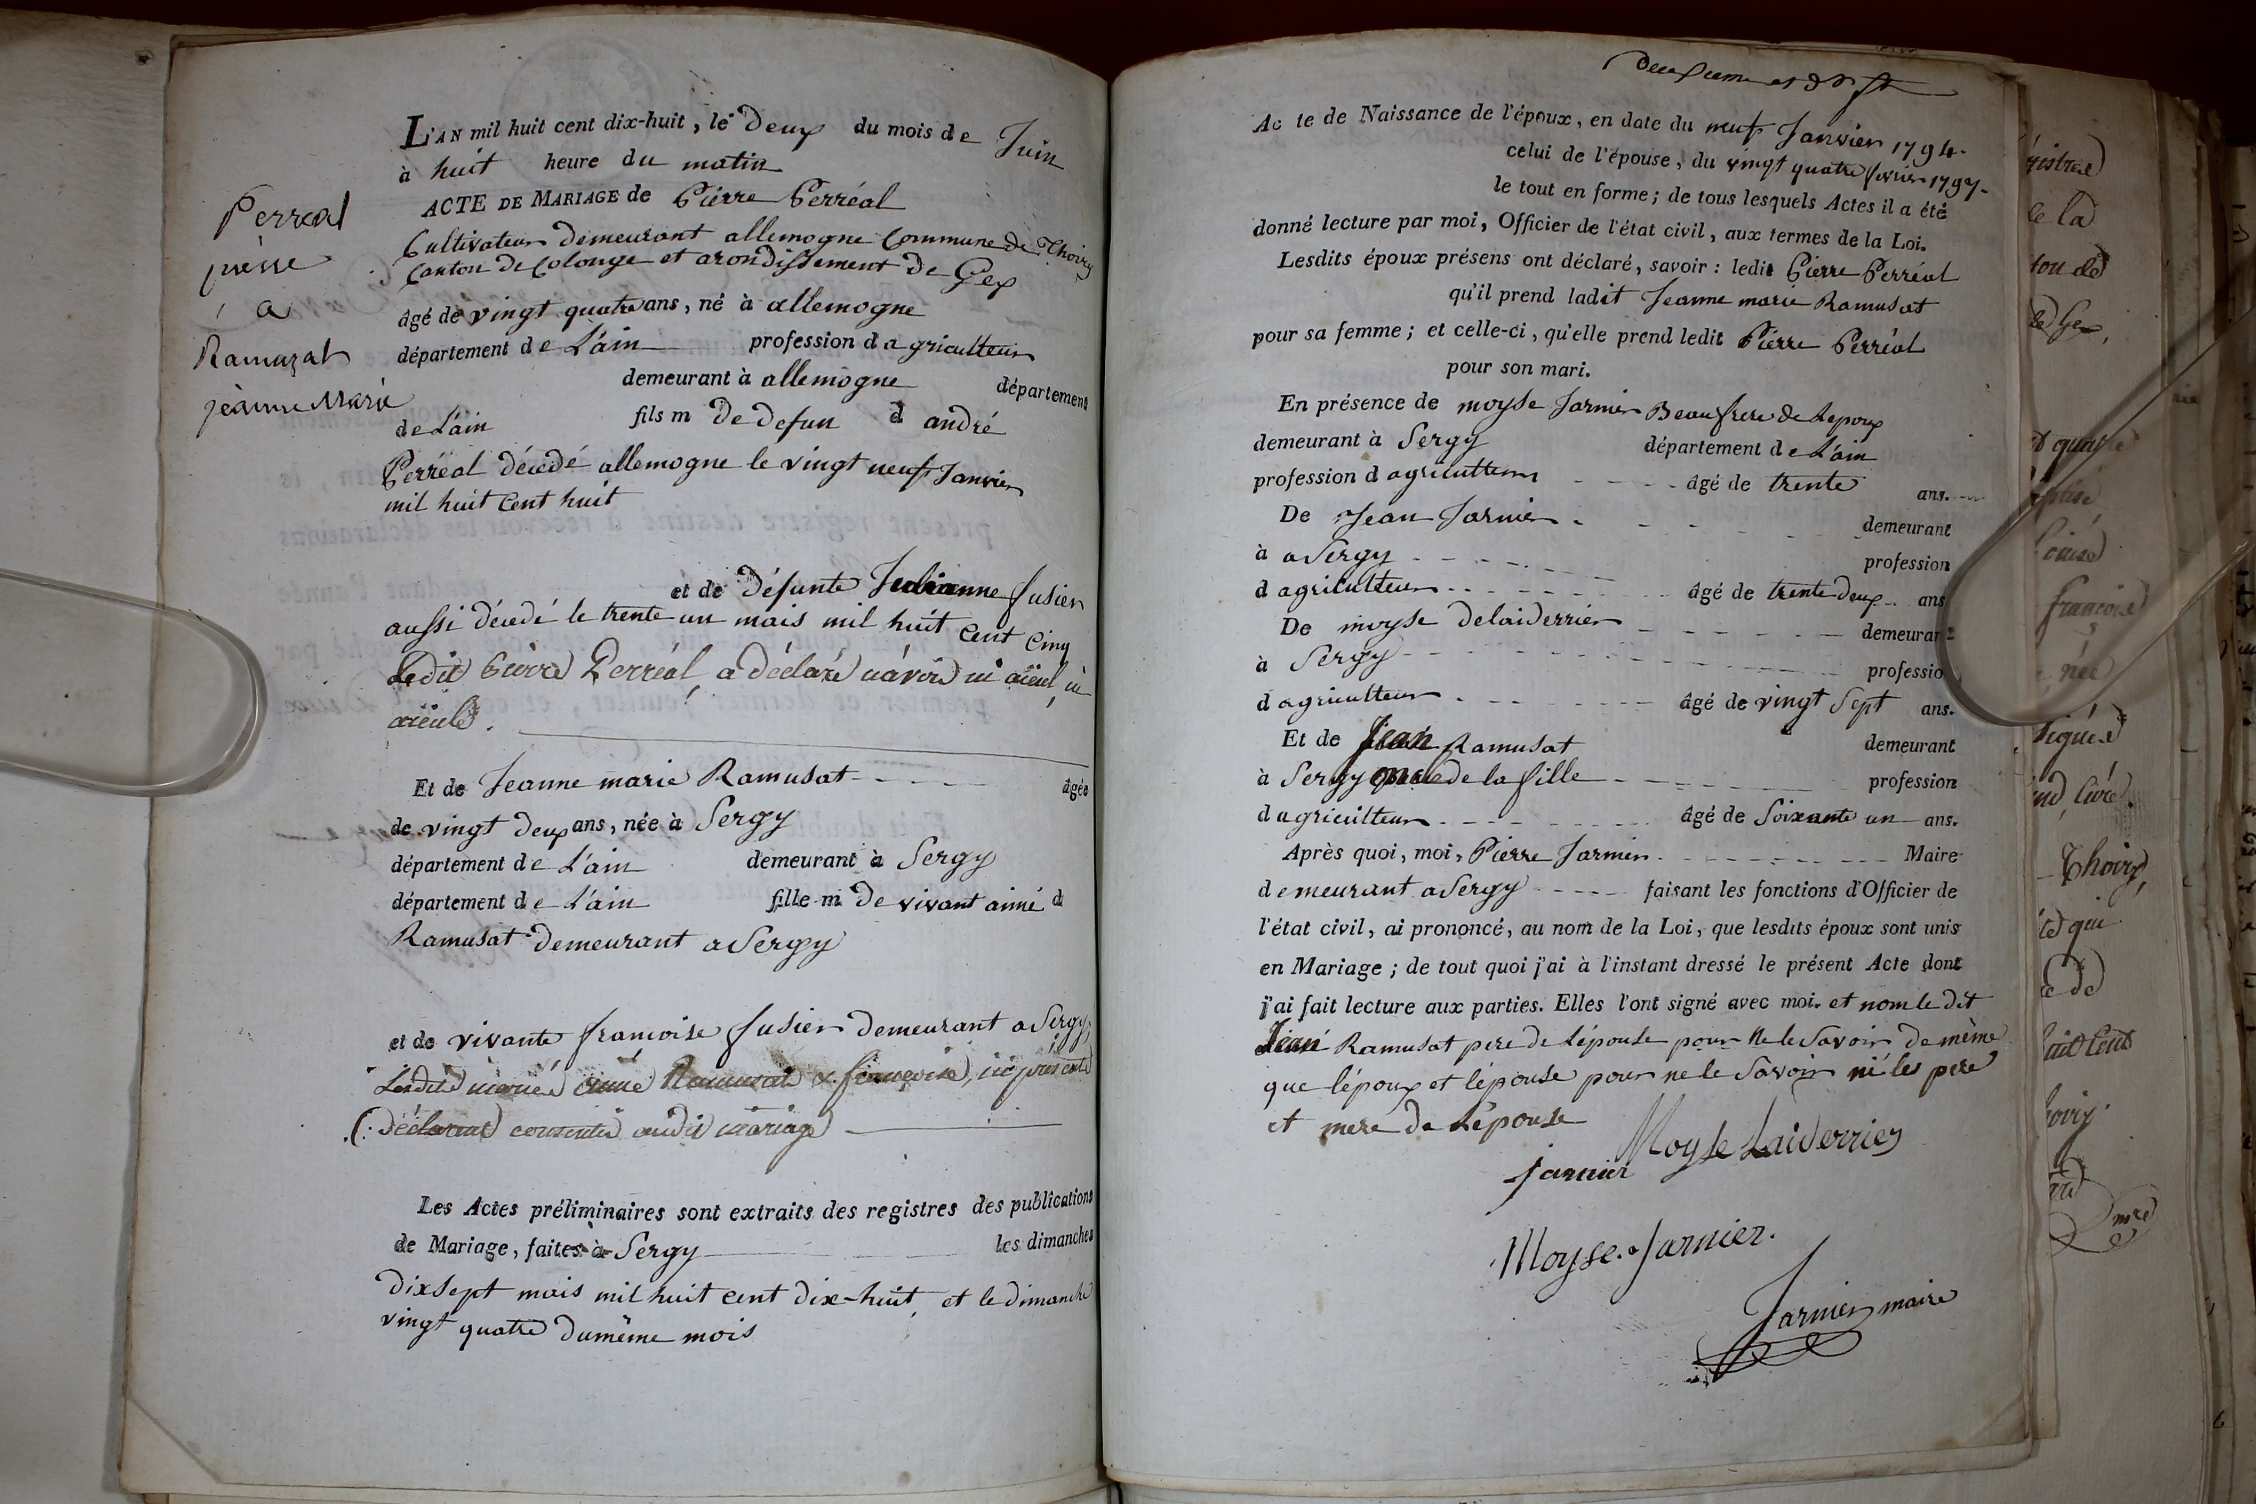 Perreal
pierre
a
Ramuzat
jeanne Marie
L'AN mil huit cent dix-huit, le deux du mois de Juin
à huit heure du matin
ACTE DE MARIAGE de Pierre Perréal
Cultivateur demeurant allemogne Commune de Thoiry
Canton de Colonge et arondissement de Gex
âgé de vingt quatre ans, né à allemogne
département de L'ain profession d agriculteur
demeurant à allemogne département
de L'ain fils m De defun d andré
Perréal décedé allemogne le vingt neuf Janvier
mil huit Cent huit
et de défunte Julianne fusier
aussi décedé le trente un mais mil huit Cent Cinq
Ledit Pierre Perréal a déclaré n'avoir ni aïeul, ni
aïeule.
Et de Jeanne marie Ramusat âgée
de vingt deux ans, née à Sergy
département de L'ain demeurant à Sergy
département de L'ain fille m De vivant aimé d
Ramusat demeurant a Sergy
et de vivante francoise fusier demeurant a Sergy,
Lesdits mariés aimé Ramusat & françoise, ici présents
déclarent consentir audit mariage
Les Actes préliminaires sont extraits des registres des publications
de Mariage, faites à Sergy les dimanches
dix sept mais mil huit cent dix-huit et le dimanche
vingt quatre du même mois
deuxieme et
Ac te de Naissance de l'époux, en date du neuf Janvier 1794.
celui de l'épouse, du vingt quatre fevrier 1797.
le tout en forme; de tous lesquels Actes il a été
donné lecture par moi, Officier de l'état civil, aux termes de la Loi.
Lesdits époux présens ont déclaré, savoir: ledit Pierre Perréal
qu'il prend ladit Jeanne marie Ramusat
pour sa femme; et celle-ci, qu'elle prend ledit Pierre Perréal
pour son mari.
En présence de moyse Jarnier Beaufrere de Lepoux
demeurant à Sergy département de L'ain
profession d agriculteur âgé de trente ans.
De Jean Jarnier demeurant
à a Sergy profession
d agriculteur âgé de trente deux ans
De moyse delaiderrier demeurant
à Sergy profession
d agriculteur âgé de vingt Sept ans.
Et de Jean Ramusat demeurant
à Sergy de la fille profession
d agriculteur âgé de Soixante un ans.
Après quoi, moi, Pierre Jarnier Maire
demeurant a Sergy faisant les fonctions d'Officier de
l'état civil, ai prononcé, au nom de la Loi, que lesdits époux sont unis
en Mariage; de tout quoi j'ai à l'instant dressé le présent Acte dont
j'ai fait lecture aux parties. Elles l'ont signé avec moi. et nom le dit
Ramusat pere de Lépouse pour ne le Savoir de même
que lépoux et lépouse pour ne le Savoir ni les pere
et mere de Lépouse
Moyse Laiderrier
jarnier
Moyse Jarnier.
Jarnier maire